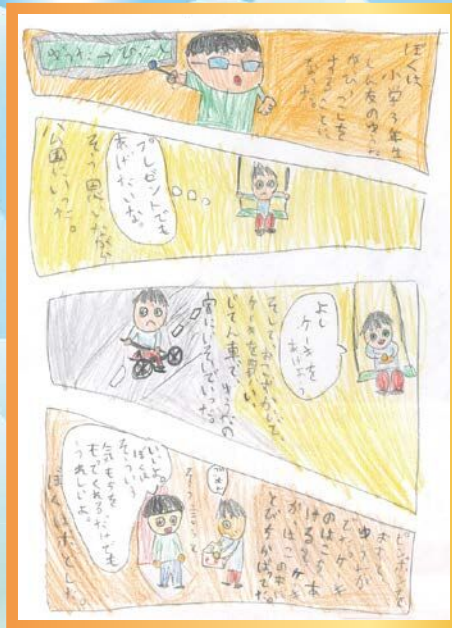 ぼくは
小学3年生
しん友のゆうた
がひっこしを
することに
なった。
プレゼントでも
あげたいな。
そう思いながら
公園にいった。
よし
ケーキを
あげよう
そしておこづかいで、
ケーキを買い、
じてん車で、ゆうたの
家にいそいでいった。
ピンポンを
おすと
ゆうたが
でてケーキ
のはこをあ
けるとケーキ
がはこの中に
とびちらばってた。
いいよ。
ぼくは
そういう
気もちを
もってくれるだけでも
うれしいよ。
ぼくはホッとした。